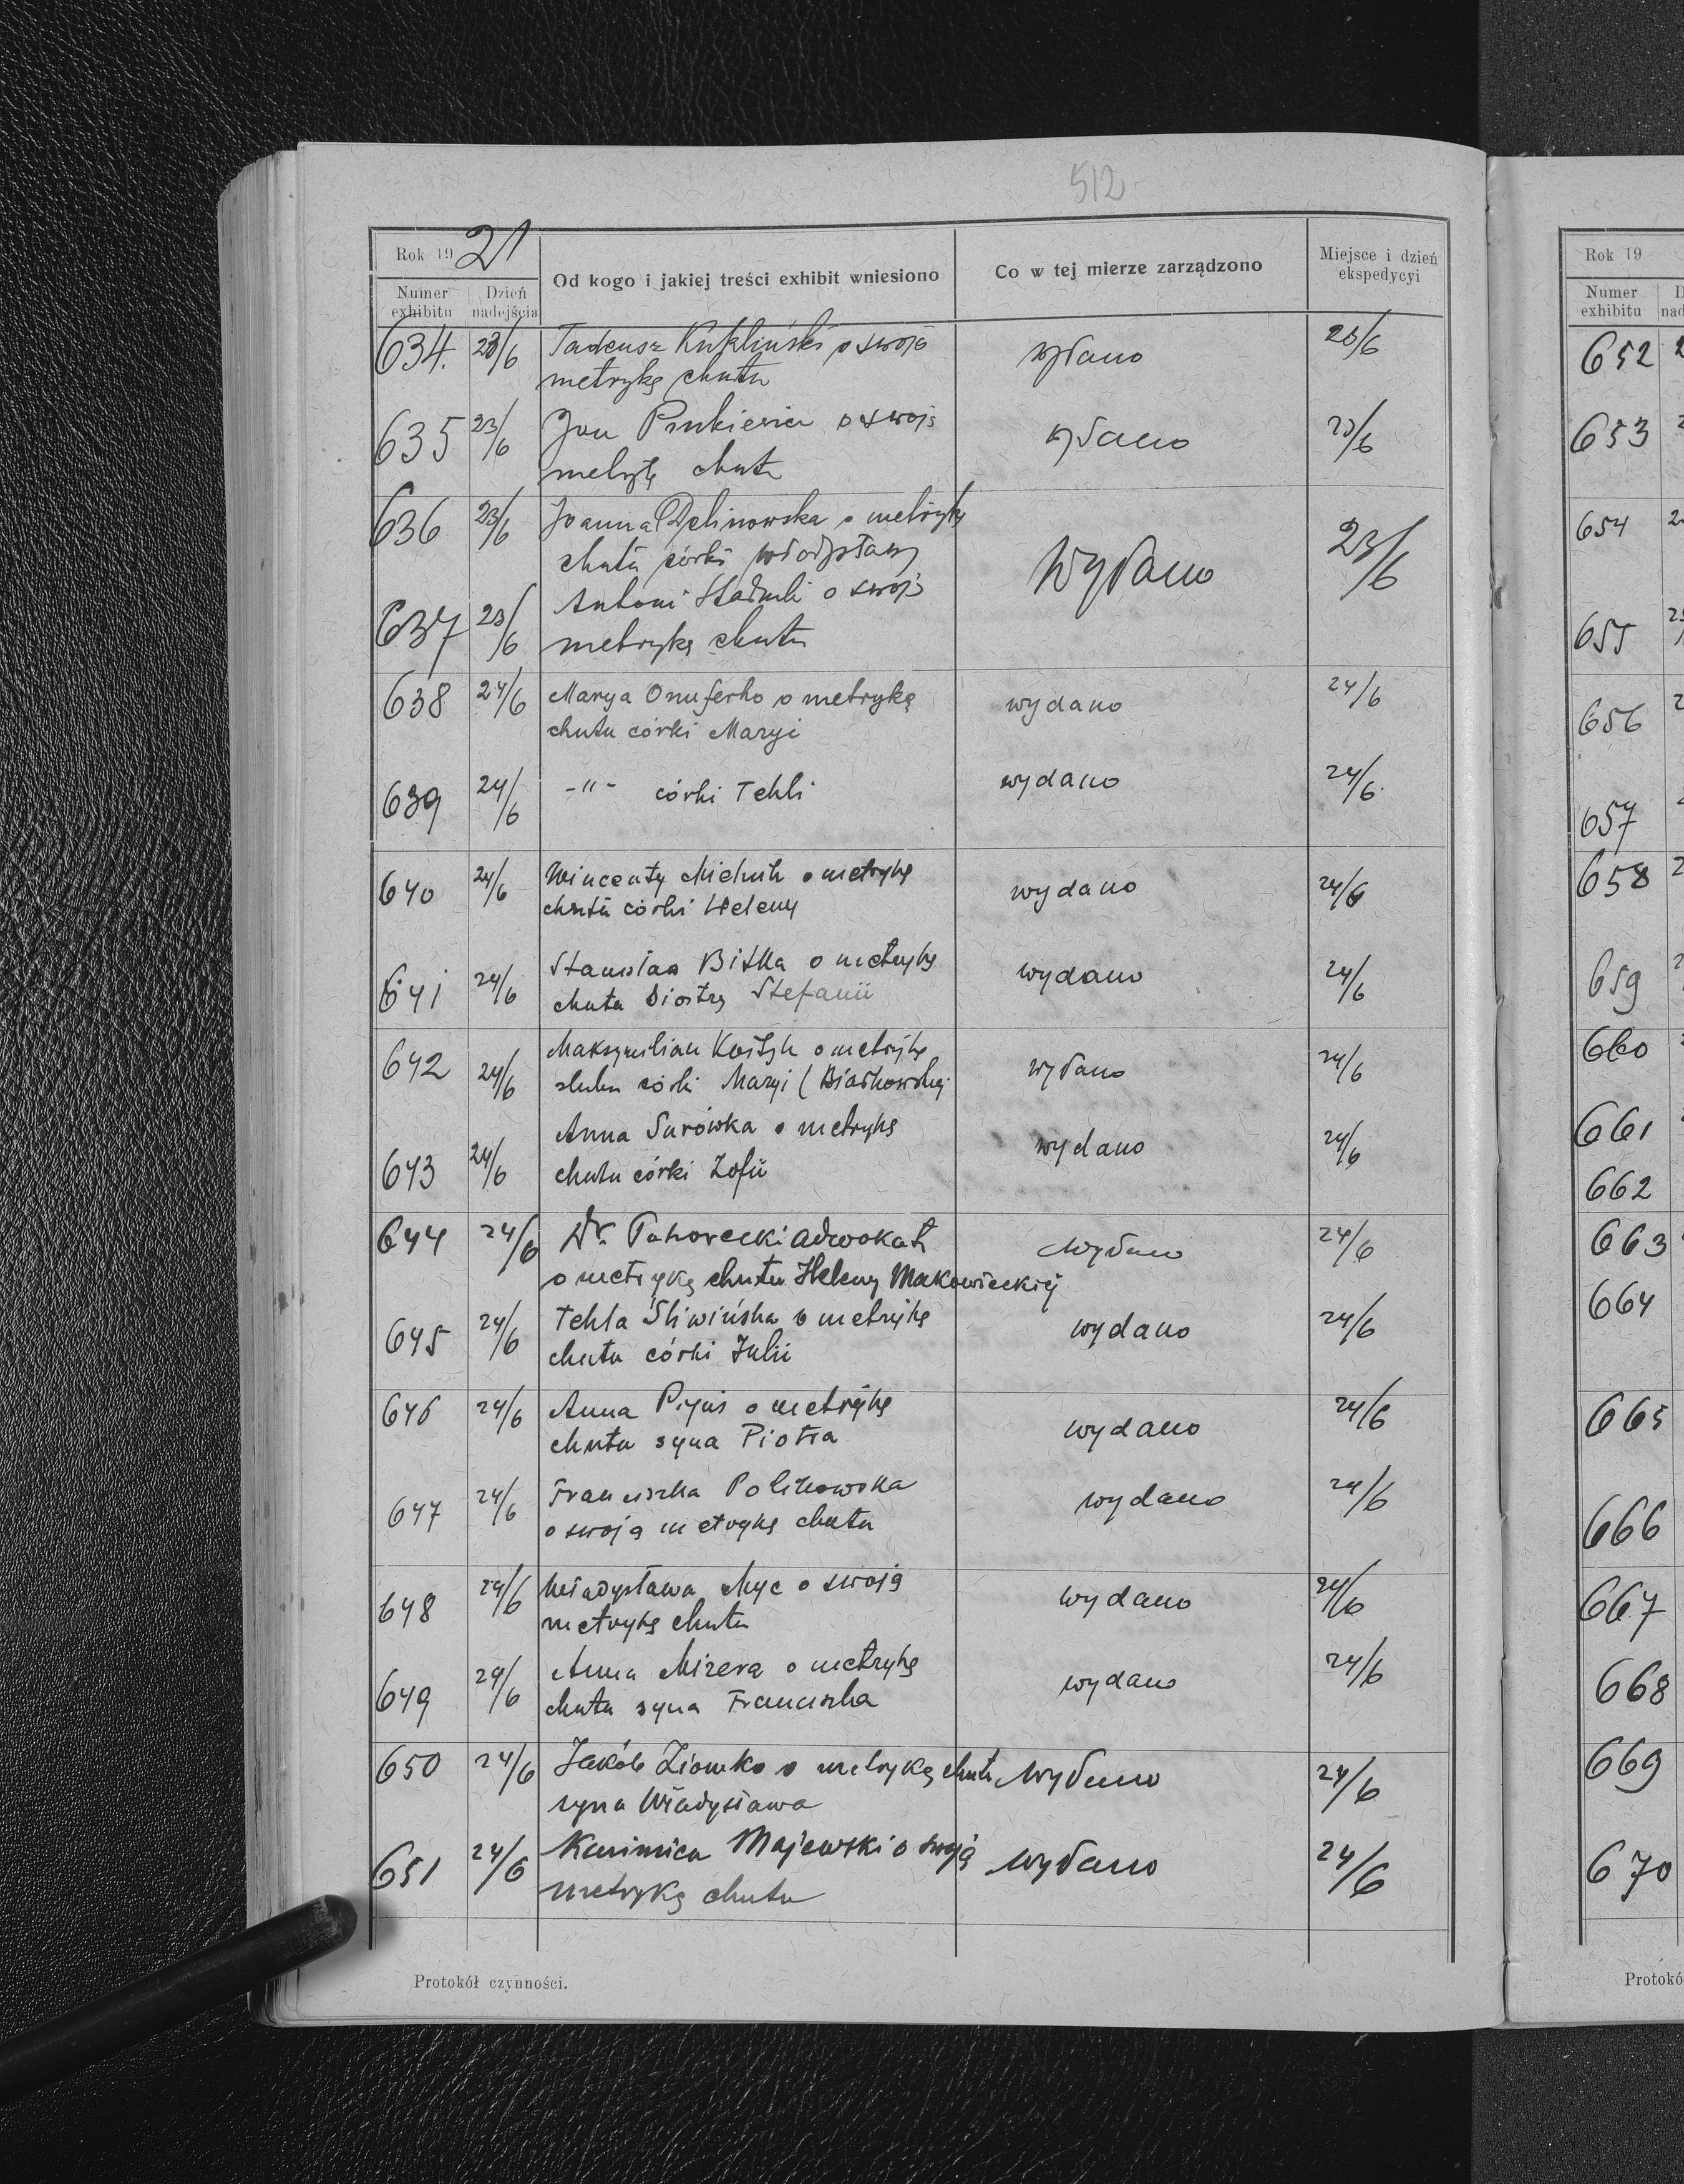 512
Rok 1921
Numer exhibitu
Dzień nadejścia
Od kogo i jakiej treści exhibit wniesiono
Co w tej mierze zarządzono
Miejsce i dzień ekspedycyi
634. 23/6 Tadeusz Kukliński o swoją wydano 23/6
metrykę chrztu
635 23/6 Jan o swoją wydano 23/6
metrykę chrztu
636 23/6 Joanna o metrykę Wydano 23/6
chrztu córki Władysławy
637 23/6 Antoni o swoją
metrykę chrztu
638 24/6 Marya Onuferko o metrykę wydano 24/6
chrztu córki Maryi
639 24/6 -"- córki Tekli wydano 24/6
640 24/6 Wincenty Michnik o metrykę wydano 24/6
chrztu córki Heleny
641 24/6 Stanisław Bitka o metrykę wydano 24/6
chrztu siostry Stefanii
642 24/6 Maksymilian o metrykę wydano 24/6
ślubu córki Maryi (Białkowskiej
643 24/6 Anna Surówka o metrykę wydano 24/6
chrztu córki Zofii
644 24/6 Dr. adwokat wydano 24/6
o metrykę chrztu Heleny Makowieckiej
645 24/6 Tekla Śliwińska o metrykę wydano 24/6
chrztu córki Julii
646 24/6 Anna o metrykę wydano 24/6
chrztu syna Piotra
647 24/6 Franciszka Politowska wydano 24/6
o swoją metrykę chrztu
648 24/6 Władysława Myc o swoją wydano 24/6
metrykę chrztu
649 24/6 Anna Mizera o metrykę wydano 24/6
chrztu syna Franciszka
650 24/6 Jakób Ziomko o metrykę chrztu wydano 24/6
syna Władysława
651 24/6 Kazimierz Majewski o swoją wydano 24/6
metrykę chrztu
Protokół czynności.
Rok 19
Numer exhibitu
652
653
654
655
656
657
658
659
660
661
662
663
664
665
666
667
668
669
670